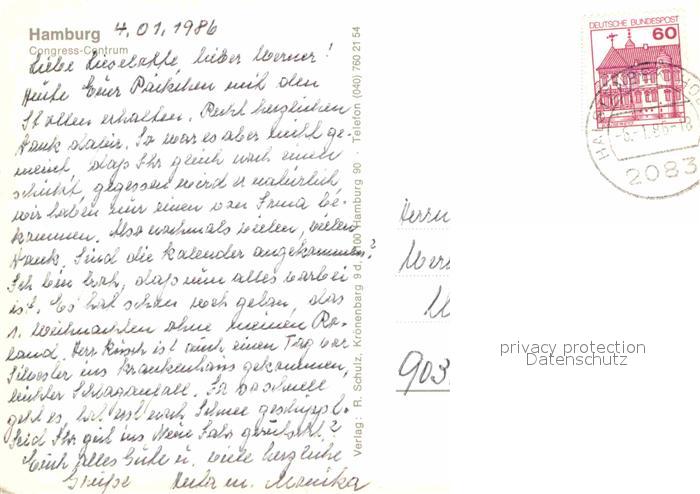 Hamburg 4.01.1986
Congress-Centrum
Liebe Lieselotte lieber Werner!
Heute Euer Päckchen mit den
Stollen erhalten. Recht herzlichen
Dank dafür. So war es aber nicht ge-
meint, daß Ihr gleich noch einen
schickt, gegessen wird er natürlich,
wir haben nur einen von Irma be-
kommen. Also nochmals vielen, vielen
Dank. Sind die Kalender angekommen?
Ich bin froh, daß nun alles vorbei
ist. Es hat schon weh getan, das
1. Weihnachten ohne meinen Ro-
land. Herr ist auch einen Tag vor
Silvester ins Krankenhaus gekommen,
leichter Schlaganfall. So schnell
geht es, hat erst noch Schnee geschippt.
Seid Ihr gut ins Neue Jahr gerutscht?
Euch alles Gute u. viele herzliche
Grüße Herta u. Monika
Verlag: R. Schulz, Krönenbarg 9 d, 2100 Hamburg 90 · Telefon (040) 760 21 54
DEUTSCHE BUNDESPOST
60
-6.-1.86-18
2083
Herrn
Wer
903
privacy protection
Datenschutz